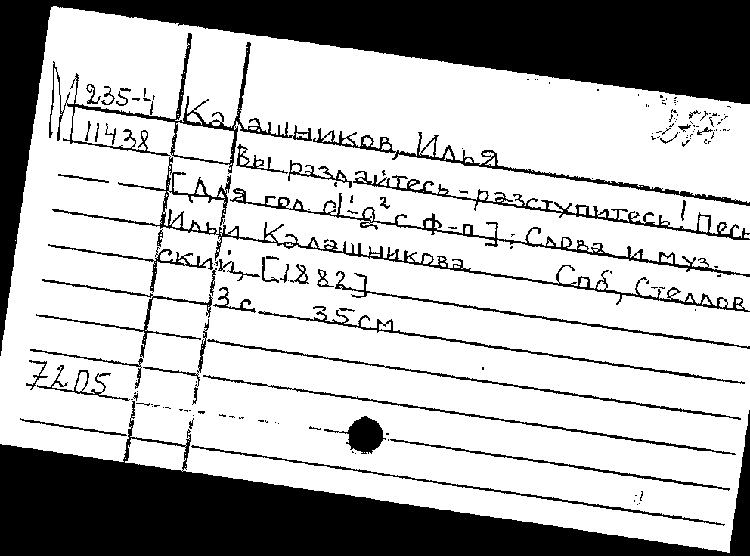 М 235-4
11438
Калашников, Илья
Вы раздайтесь-разступитесь! Песн
[Для гол. d¹-g² с ф-п]; Слова и муз.
Ильи Калашникова Спб, Стеллов
ский, [1882]
3 с. 35 см
7205